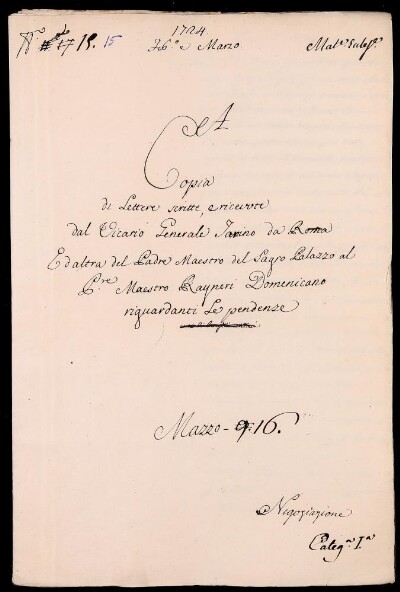 1724
N.º 17 15. 15
26.º Marzo
Copia
di Lettere scritte, e ricevute
dal Vicario Generale Tarino da Roma
Ed altra del Padre Maestro del Sagro Palazzo al
P.re Maestro Rayneri Domenicano
riguardanti Le pendenze
Mazzo - 9. 16.
Negoziazione
Categ.a I.a